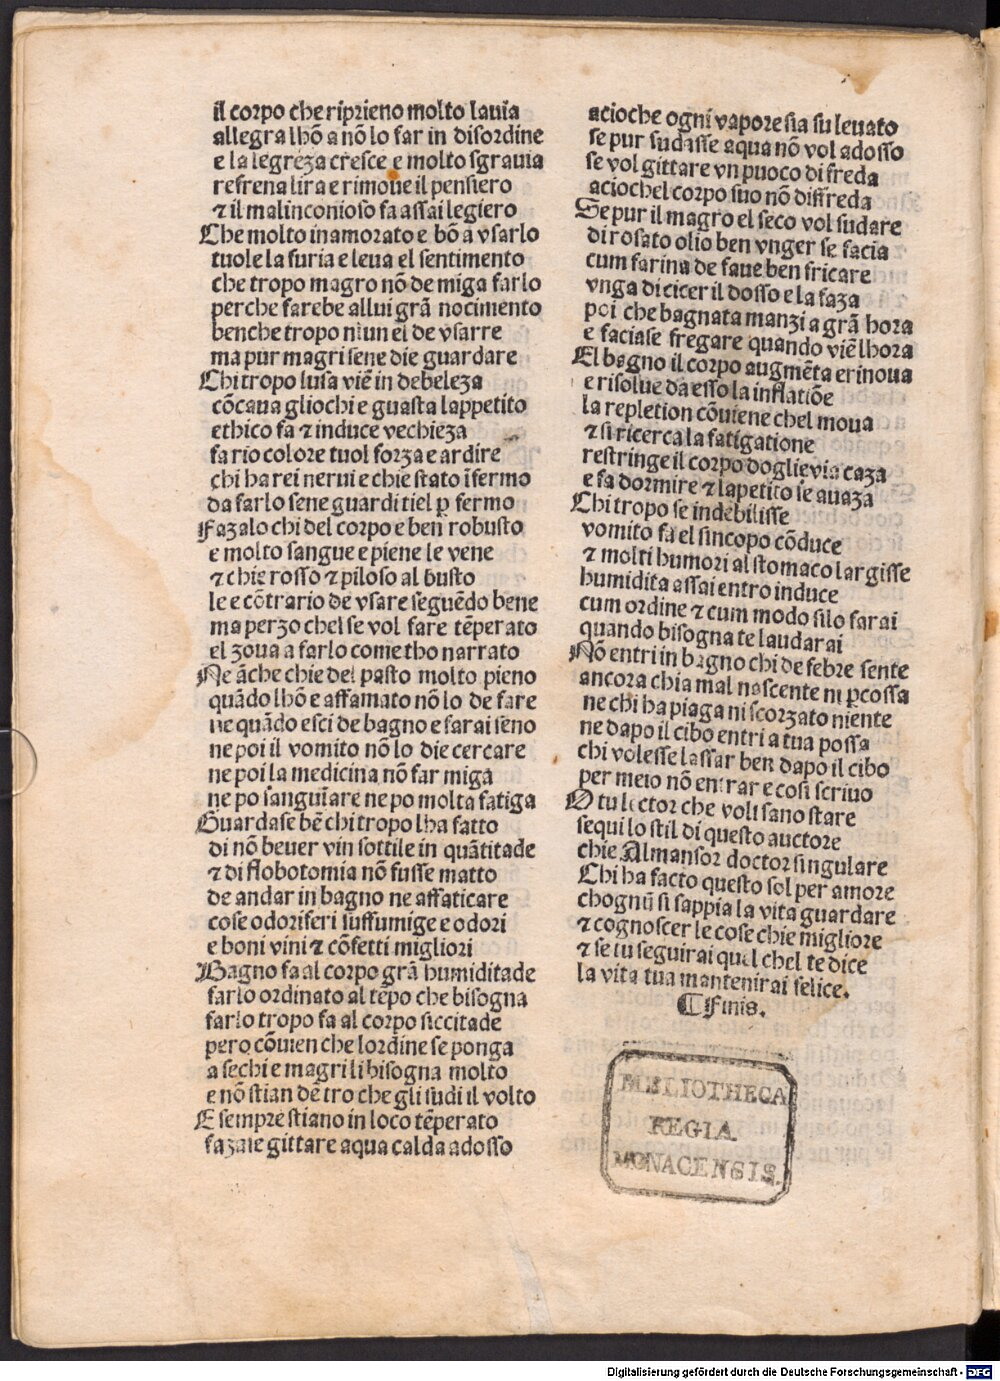 il corpo che riprieno molto lauia
allegra lhõ a nõ lo far in disordine
e la legreza cresce e molto sgrauia
refrena lira e rimoue il pensiero
⁊ il malinconioso fa assai legiero
Che molto inamorato e bõ a vsarlo
tuole la furia e leua el sentimento
che tropo magro nõ de miga farlo
perche farebe allui grã nocimento
benche tropo niun ei de vsarre
ma pur magri sene die guardare
Chi tropo lusa viẽ in debeleza
cõcaua gliochi e guasta lappetito
ethico fa ⁊ induce vechieza
fa rio colore tuol forza e ardire
chi ha rei nerui e chie stato ĩfermo
da farlo sene guardi tiel ꝑ fermo
Fazalo chi del corpo e ben robusto
e molto sangue e piene le vene
⁊ chie rosso ⁊ piloso al busto
le e cõtrario de vsare seguẽdo bene
ma perzo chel se vol fare tẽperato
el zoua a farlo come tho narrato
Ne ãche chie del pasto molto pieno
quãdo lhõ e affamato nõ lo de fare
ne quãdo esci de bagno e farai seno
ne poi il vomito nõ lo die cercare
ne poi la medicina nõ far miga
ne po sanguĩare ne po molta fatiga
Guardase bẽ chi tropo lha fatto
di nõ beuer vin sottile in quãtitade
⁊ di flobotomia nõ fusse matto
de andar in bagno ne affaticare
cose odoriferi suffumige e odori
e boni vini ⁊ cõfetti migliori
Bagno fa al corpo grã humiditade
farlo ordinato al tẽpo che bisogna
farlo tropo fa al corpo siccitade
pero cõuien che lordine se ponga
a sechi e magri li bisogna molto
e nõ stian dẽtro che gli sudi il volto
E sempre stiano in loco tẽperato
fazase gittare aqua calda adosso
acioche ogni vapore sia su leuato
se pur sudasse aqua nõ vol adosso
se vol gittare vn puoco di freda
aciochel corpo suo nõ diffreda
Se pur il magro el seco vol sudare
di rosato olio ben vnger se facia
cum farina de faue ben fricare
vnga di cicer il dosso e la faza
poi che bagnata manzi a grã hora
e faciase fregare quando viẽ lhora
El bagno il corpo augmẽta e rinoua
e risolue da esso la inflatiõe
la repletion cõuiene chel moua
⁊ si ricerca la fatigatione
restringe il corpo doglie via caza
e fa dormire ⁊ lapetito se auaza
Chi tropo se indebilisse
vomito fa el sincopo cõduce
⁊ molti humori al stomaco largisse
humidita assai entro induce
cum ordine ⁊ cum modo silo farai
quando bisogna te laudarai
Nõ entri in bagno chi de febre sente
ancora chi a mal nascente ni ꝑcossa
ne chi ha piaga ni scorzato niente
ne dapo il cibo entri a tua possa
chi volesse lassar ben dapo il cibo
per meio nõ entrar e cosi scriuo
O tu lector che voli sano stare
sequi lo stil di questo auctore
chie Almansor doctor singulare
Chi ha facto questo sol per amore
chognũ si sappia la vita guardare
⁊ cognoscer le cose chie migliore
⁊ se tu seguirai quel chel te dice
la vita tua mantenirai felice.
¶Finis.
BIBLIOTHECA
REGIA
MONACENSIS.
Digitalisierung gefördert durch die Deutsche Forschungsgemeinschaft - DFG